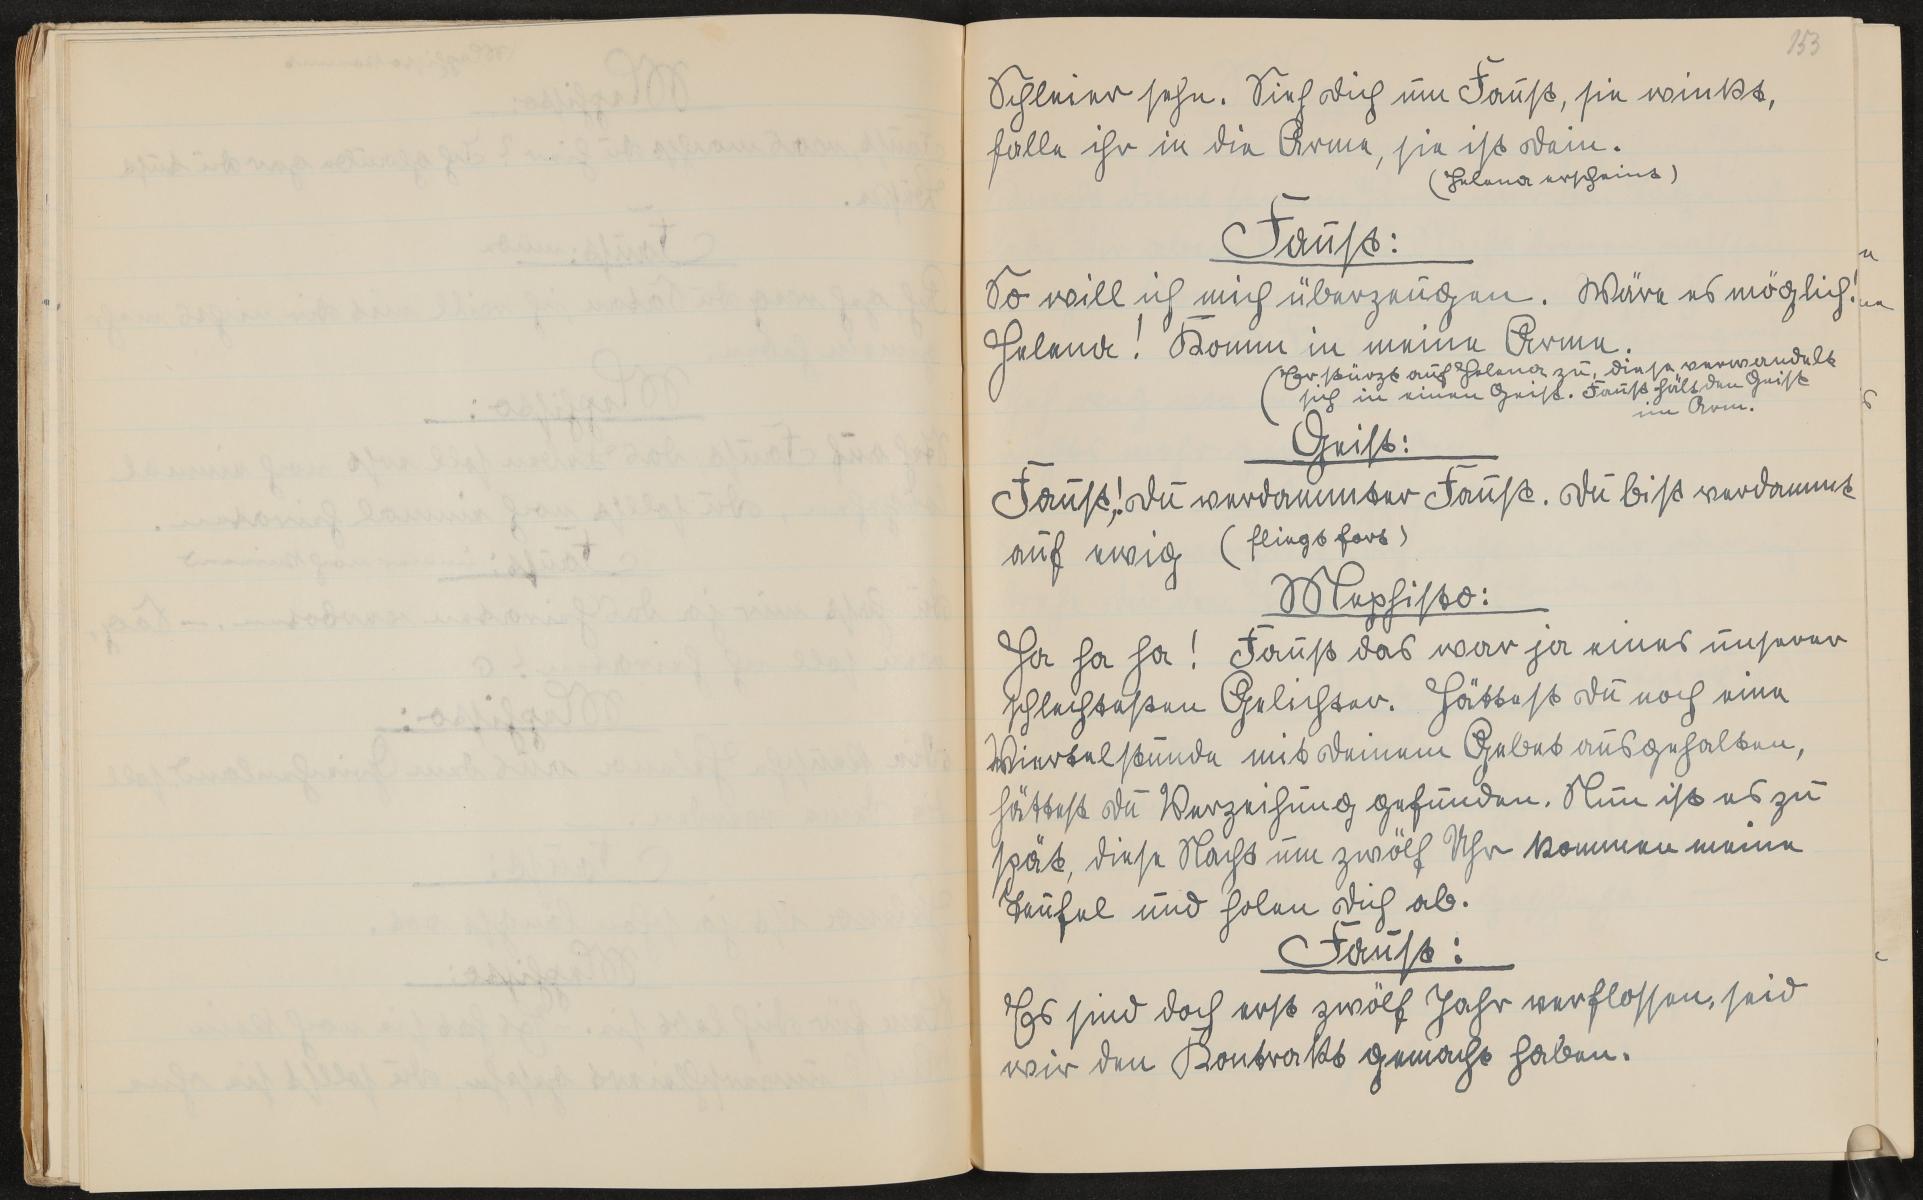 153
Schleier sehn. Sieh dich um Faust, sie winkt,
falle ihr in die Arme, sie ist dein.
(Helena erscheint)
Faust:
So will ich mich überzeugen. Wäre es möglich!
Helena! Komm in meine Arme.
(Er stürzt auf Helena zu, diese verwandelt
sich in einen Geist. Faust hält den Geist
im Arm.
Geist:
Faust,! Du verdammter Faust. Du bist verdammt
auf ewig (fliegt fort)
Mephisto:
Ha ha ha! Faust das war ja eines unserer
schlechtesten Gelichter. Hättest du noch eine
Viertelstunde mit deinem Gebet ausgehalten,
hättest du Verzeihung gefunden. Nun ist es zu
spät, diese Nacht um zwölf Uhr kommen meine
Teufel und holen dich ab.
Faust:
Es sind doch erst zwölf Jahr verflossen, seid
wir den Kontrakt gemacht haben.